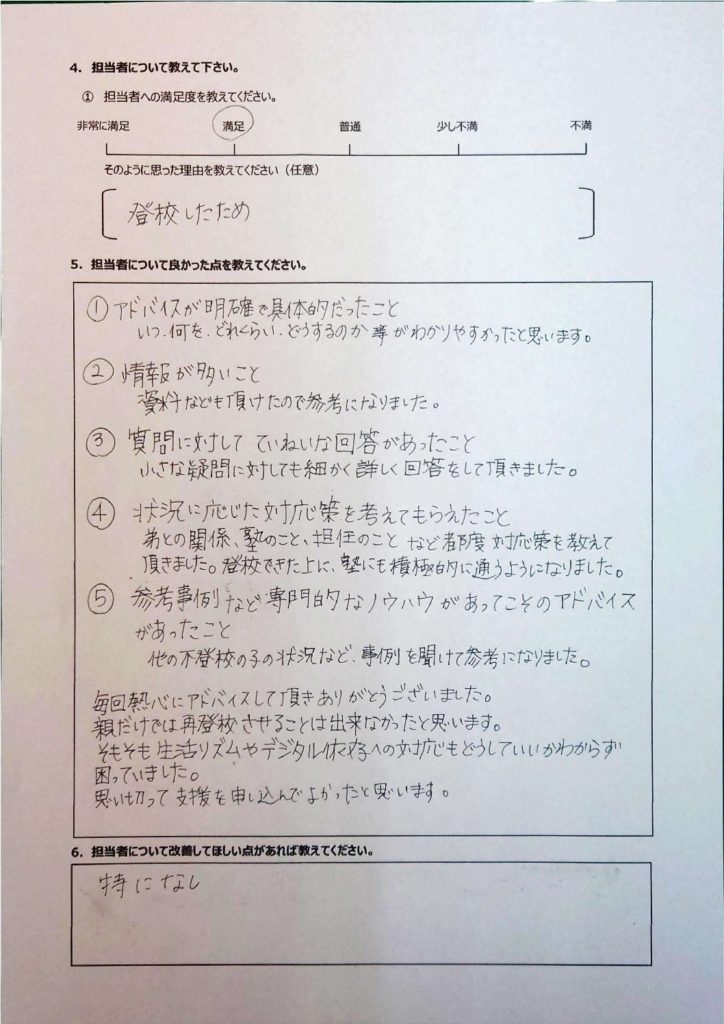 4. 担当者について教えて下さい。
① 担当者への満足度を教えてください。
非常に満足 満足 普通 少し不満 不満
そのように思った理由を教えてください（任意）
登校したため
5. 担当者について良かった点を教えてください。
① アドバイスが明確で具体的だったこと
いつ、何を、どれくらい、どうするのか等がわかりやすかったと思います。
② 情報が多いこと
資料なども頂けたので参考になりました。
③ 質問に対して ていねいな回答があったこと
小さな疑問に対しても細かく詳しく回答をして頂きました。
④ 状況に応じた対応策を考えてもらえたこと
弟との関係、塾のこと、担任のことなど都度対応策を教えて
頂きました。登校できた上に、塾にも積極的に通うようになりました。
⑤ 参考事例など専門的なノウハウがあってこそのアドバイス
があったこと
他の不登校の子の状況など、事例を聞けて参考になりました。
毎回熱心にアドバイスして頂きありがとうございました。
親だけでは再登校させることは出来なかったと思います。
そもそも生活リズムやデジタル依存への対応もどうしていいかわからず
困っていました。
思い切って支援を申し込んでよかったと思います。
6. 担当者について改善してほしい点があれば教えてください。
特になし